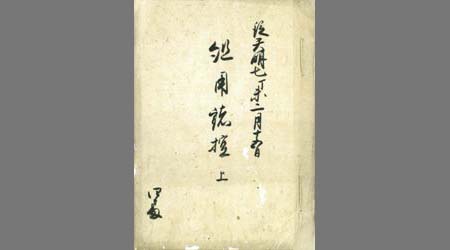 從天明七丁未二月十
日
組用諸控 上